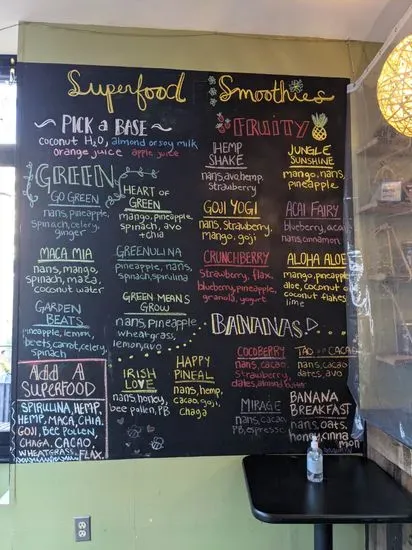 Superfood Smoothies
PICK a BASE
coconut H2O, almond or soy milk
orange juice apple juice
GREEN
GO GREEN
nans, pineapple,
spinach, celery,
ginger
MACA MIA
nans, mango,
spinach, maca,
coconut water
GARDEN
BEATS
pineapple, lemon,
beets, carrot, celery,
spinach
Add A
SUPERFOOD
SPIRULINA, HEMP,
HEMP, MACA, CHIA,
GOJI, BEE POLLEN,
CHAGA, CACAO,
WHEATGRASS, FLAX.
HEART OF
GREEN
mango, pineapple
spinach, avo
+chia
GREENULINA
pineapple, nans,
spinach, spirulina
GREEN MEANS
GROW
nans, pineapple
wheatgrass,
lemon, avo
IRISH
LOVE
nans, honey,
bee pollen, PB
HAPPY
PINEAL
nans, hemp,
cacao, goji,
chaga
FRUITY
HEMP
SHAKE
nans, avo, hemp,
strawberry
GOJI YOGI
nans, strawberry,
mango, goji
CRUNCHBERRY
strawberry, flax,
blueberry, pineapple,
granola, yogurt
JUNGLE
SUNSHINE
mango, nans,
pineapple
ACAI FAIRY
blueberry, acai,
nans, cinnamon
ALOHA ALOE
mango, pineapple
aloe, coconut oil
coconut flakes
lime
BANANAS
COCOBERRY
nans, cacao,
strawberry
dates, almond butter
MIRAGE
nans, cacao,
PB, espresso
TAO CACAO
nans, cacao
dates, avo
BANANA
BREAKFAST
nans, oats,
honey, cinna
mon